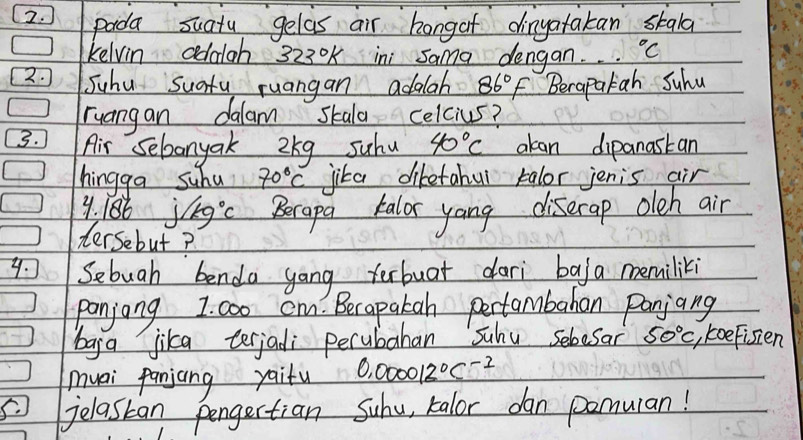 2. pada suatu gelas air hangat dinyatakan skala
kelvin adalah 323°K ini sama dengan... °C
2. Suhu suatu ruangan adalah 86°F Berapakah Suhu
ruangan dalam skala celcius?
3. Air sebanyak 2kg suhu 40°C akan dipanaskan
hingga suhu 70°C jika diketahui kalor jenis air
4.186 j/kg°C Berapa kalor yang diserap oleh air
tersebut?
4. Sebuah benda yang terbuat dari baja memiliki
panjang 1.000 cm. Berapakah pertambahan panjang
baja jika terjadi perubahan suhu sebesar 50°C, koefisien
muai panjang yaitu 0.000012°C⁻²
5. jelaskan pengertian suhu, kalor dan pemuian!